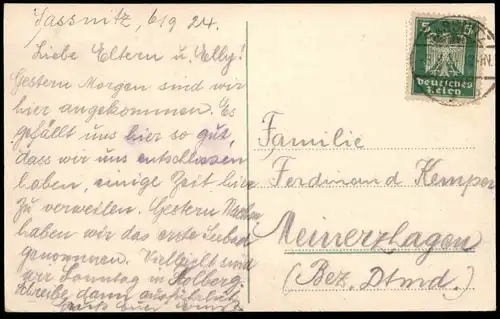 Sassnitz, 6/9 24.
Liebe Eltern u. Elly!
Gestern Morgen sind wir
hier angekommen. Es
gefällt uns hier so gut,
dass wir uns entschlossen
haben, einige Zeit hier
zu verweilen. Gestern Nachm.
haben wir das erste Seebad
genommen. Vielleicht sind
wir Sonntag in Kolberg.
Schreibe dann ausführlich.
Gruß euer
5 5
Deutsches
Reich
Familie
Ferdinand Kemper
Meinerzhagen
(Bez. Dtmd.)